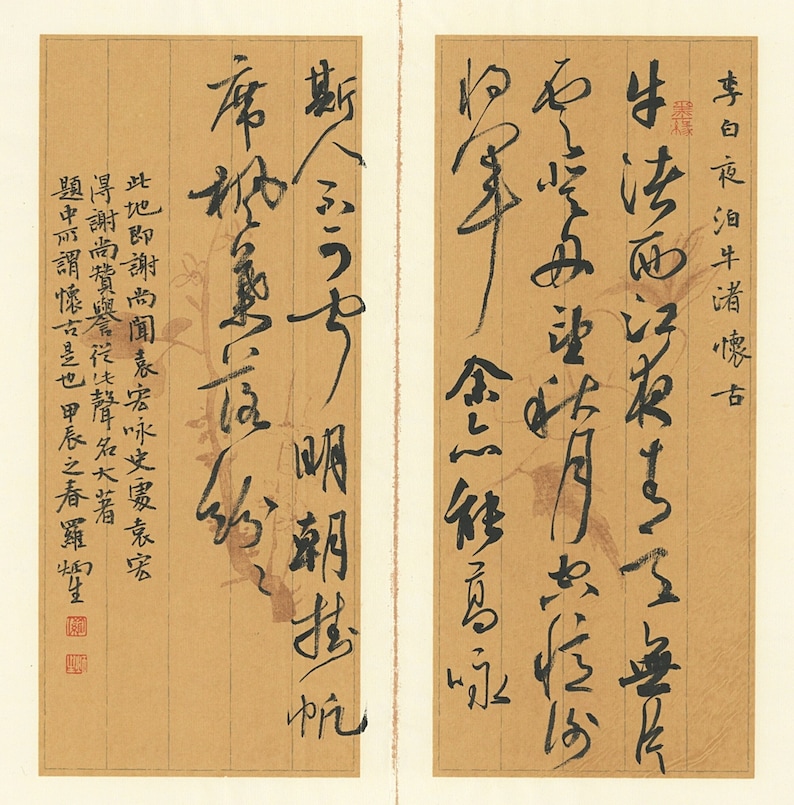 李白夜泊牛渚懷古
牛渚西江夜青天無片
雲登舟望秋月空憶謝
將軍余亦能高詠
斯人不可聞明朝挂帆
席楓葉落紛々
此地即謝尚聞袁宏咏史處袁宏
得謝尚贊譽從此聲名大著
題中所謂懷古是也甲辰之春羅炳生